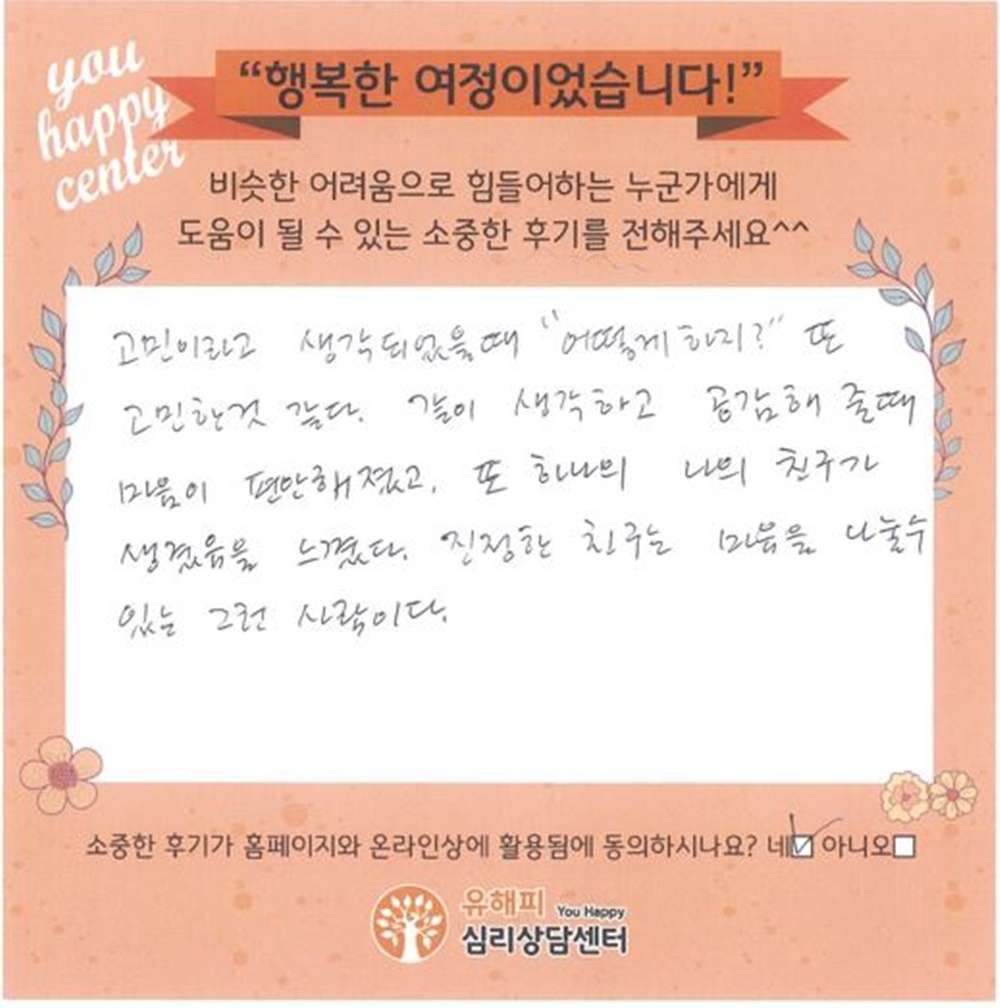 you
happy
center
“행복한 여정이었습니다!”
비슷한 어려움으로 힘들어하는 누군가에게
도움이 될 수 있는 소중한 후기를 전해주세요^^
고민이라고 생각되었을때 "어떻게하지?" 또
고민한것 같다. 같이 생각하고 공감해 줄때
마음이 편안해졌고, 또 하나의 나의 친구가
생겼음을 느꼈다. 진정한 친구는 마음을 나눌수
있는 그런 사람이다.
소중한 후기가 홈페이지와 온라인상에 활용됨에 동의하시나요? 네☑ 아니오☐
유해피 You Happy
심리상담센터